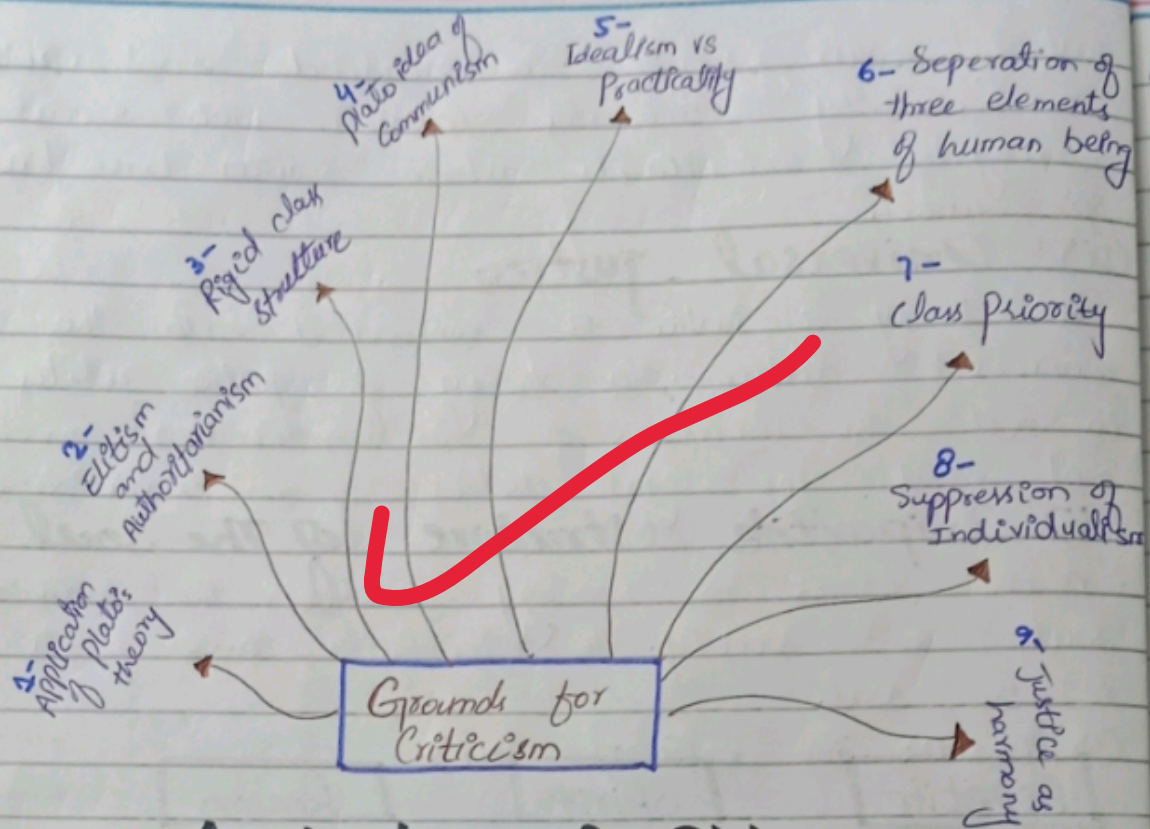 1-
Application
of Plato's
theory
2-
Elitism
and
Authoritarianism
3-
Rigid class
structure
4-
Plato idea of
Communism
5-
Idealism vs
Practicality
6- Seperation of
three elements
of human being
7-
Class Priority
8-
Suppression of
Individualism
9-
Justice as
harmony
Grounds for
Criticism